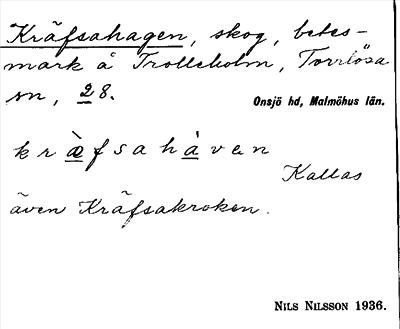 Kräfsahagen, skog, betes-
mark å Trolleholm, Torrlösa
sn, 28.
Onsjö hd, Malmöhus län.
kræ̀fsahàven
Kallas
även Kräfsakroken.
NILS NILSSON 1936.